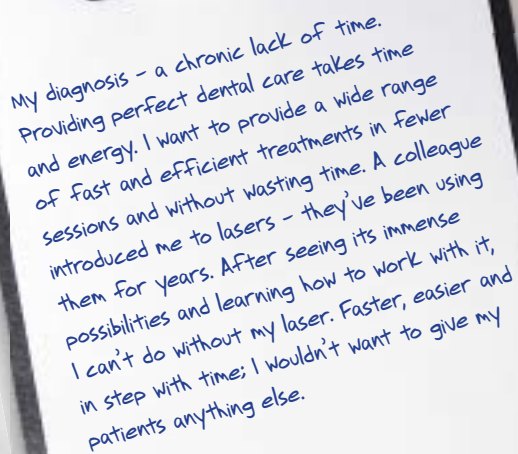 My diagnosis – a chronic lack of time.
Providing perfect dental care takes time
and energy. I want to provide a wide range
of fast and efficient treatments in fewer
sessions and without wasting time. A colleague
introduced me to lasers – they've been using
them for years. After seeing its immense
possibilities and learning how to work with it,
I can't do without my laser. Faster, easier and
in step with time; I wouldn't want to give my
patients anything else.